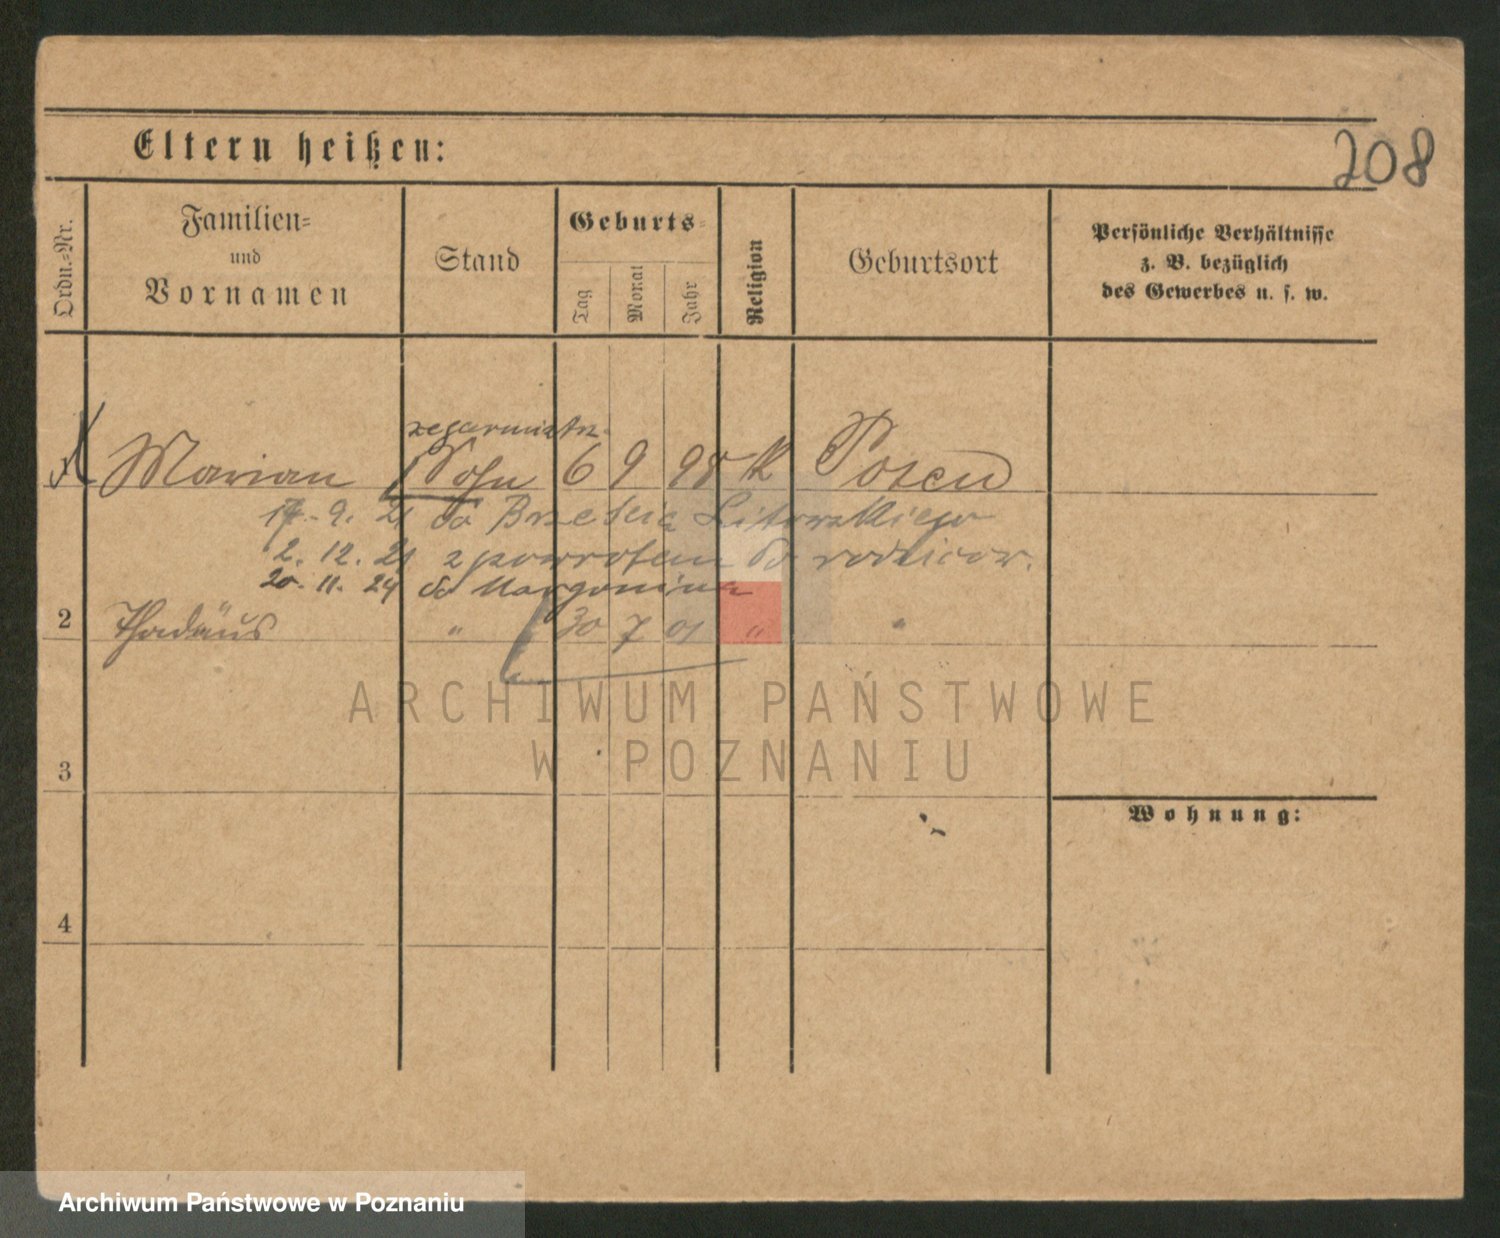 Eltern heißen:
208
Ordn.-Nr.
Familien-
und
Vornamen
Stand
Geburts-
Tag
Monat
Jahr
Religion
Geburtsort
Persönliche Verhältnisse
z. B. bezüglich
des Gewerbes u. s. w.
zegarmistrz
1 Marian Sohn 6 9 98 K Posen
17. 9. 21 do Brześcia Litewskiego
2. 12. 21 z powrotem do rodziców.
20. 11. 24 do Margonina
2 Thadäus " 30 7 01 " "
ARCHIWUM PAŃSTWOWE
W POZNANIU
3
Wohnung:
4
Archiwum Państwowe w Poznaniu